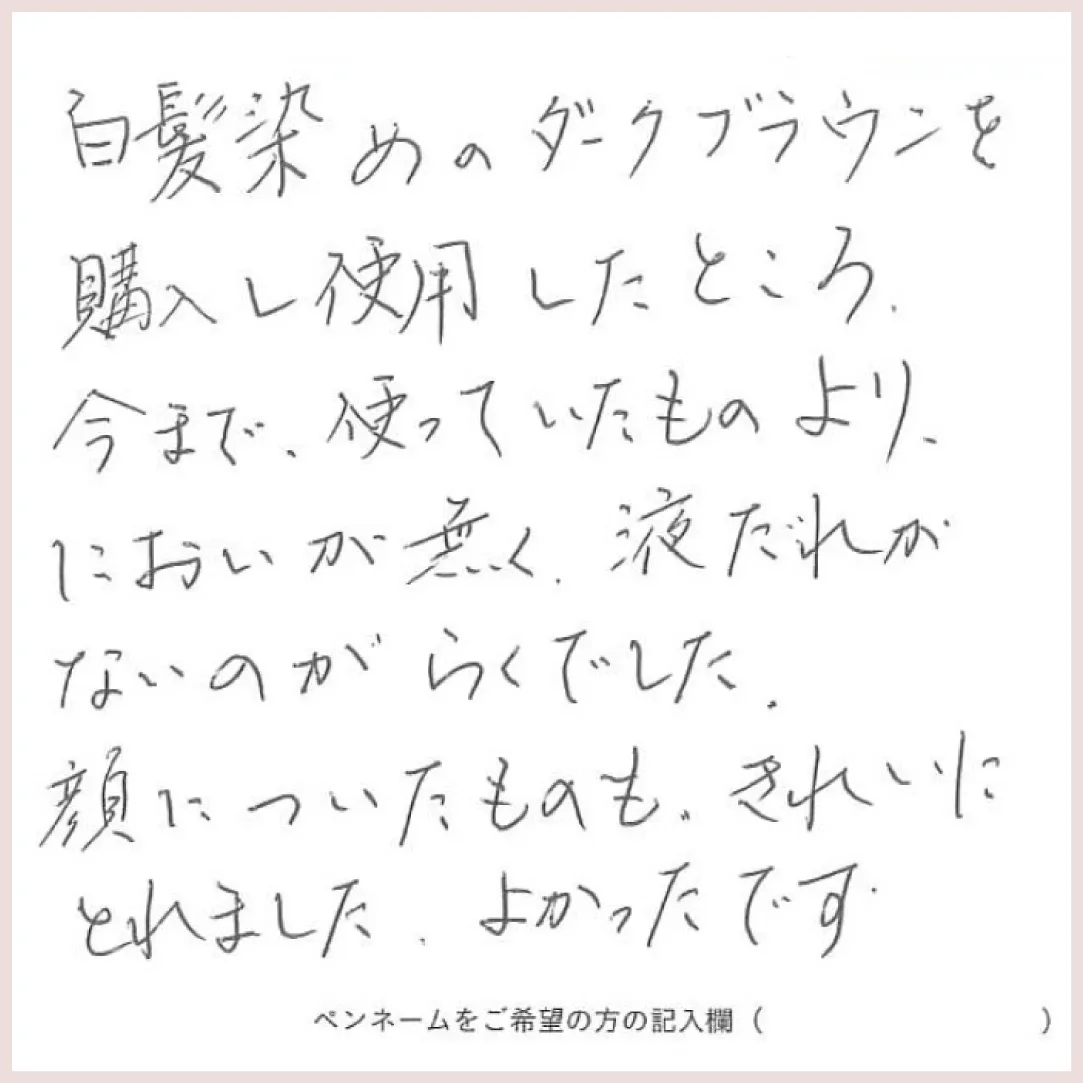 白髪染めのダークブラウンを
購入し使用したところ、
今まで、使っていたものより、
においが無く、液だれが
ないのがらくでした。
顔についたものも、きれいに
とれました。よかったです
ペンネームをご希望の方の記入欄（　　　　　　　　　　）